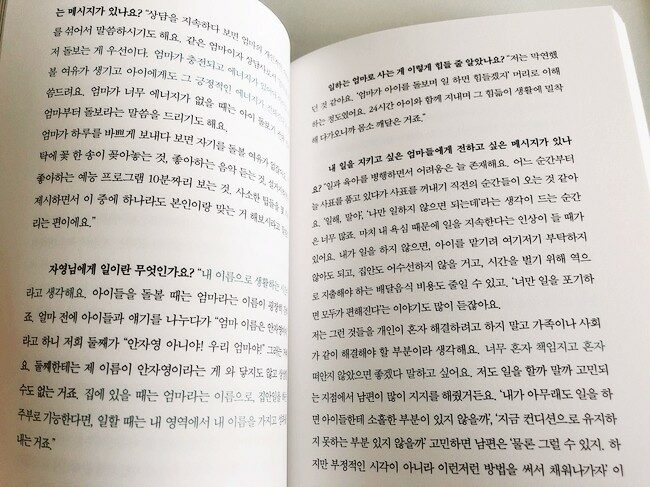 는 메시지가 있나요? “상담을 지속하다 보면 엄마의
를 섞어서 말씀하시기도 해요. 같은 엄마이자 상담사로
저 돌보는 게 우선이다. 엄마가 충전되고 에너지가
볼 여유가 생기고 아이에게도 그 긍정적인 에너지가
씀드려요. 엄마가 너무 에너지가 없을 때는 아이 돌보기
엄마부터 돌보라는 말씀을 드리기도 해요.
엄마가 하루를 바쁘게 보내다 보면 자기를 돌볼 여유가
탁에 꽃 한 송이 꽂아놓는 것, 좋아하는 음악 듣는 것,
좋아하는 예능 프로그램 10분짜리 보는 것. 사소한 팁들을
제시하면서 이 중에 하나라도 본인이랑 맞는 거 해보시라고
리는 편이에요.”
자영님에게 일이란 무엇인가요? “내 이름으로 생활하는
라고 생각해요. 아이들을 돌볼 때는 엄마라는 이름이 굉장히
죠. 얼마 전에 아이들과 얘기를 나누다가 “엄마 이름은 안자영이
라고 하니 저희 둘째가 “안자영 아니야! 우리 엄마야!” 그러는
요. 둘째한테는 제 이름이 안자영이라는 게 와 닿지도 않고
수도 없는 거죠. 집에 있을 때는 엄마라는 이름으로, 집안일을
주부로 기능한다면, 일할 때는 내 영역에서 내 이름을 가지고
내는 거죠.”
일하는 엄마로 사는 게 이렇게 힘들 줄 알았나요? “저는 막연했
던 것 같아요. ‘엄마가 아이를 돌보며 일 하면 힘들겠지’ 머리로 이해
하는 정도였어요. 24시간 아이와 함께 지내며 그 힘듦이 생활에 밀착
해 다가오니까 몸소 깨달은 거죠.”
내 일을 지키고 싶은 엄마들에게 전하고 싶은 메시지가 있나
요? “일과 육아를 병행하면서 어려움은 늘 존재해요. 어느 순간부터
늘 사표를 품고 있다가 사표를 꺼내기 직전의 순간들이 오는 것 같아
요. ‘일해, 말아’, ‘나만 일하지 않으면 되는데’라는 생각이 드는 순간
은 너무 많죠. 마치 내 욕심 때문에 일을 지속한다는 인상이 들 때가
있어요. 내가 일을 하지 않으면, 아이를 맡기려 여기저기 부탁하지
않아도 되고, 집안도 어수선하지 않을 거고, 시간을 벌기 위해 역으
로 지출해야 하는 배달음식 비용도 줄일 수 있고. ‘너만 일을 포기하
면 모두가 편해진다’는 이야기도 많이 듣잖아요.
저는 그런 것들을 개인이 혼자 해결하려고 하지 말고 가족이나 사회
가 같이 해결해야 할 부분이라 생각해요. 너무 혼자 책임지고 혼자
떠안지 않았으면 좋겠다 말하고 싶어요. 저도 일을 할까 말까 고민되
는 지점에서 남편이 많이 지지를 해줬거든요. ‘내가 아무래도 일을 하
면 아이들한테 소홀한 부분이 있지 않을까’, ‘지금 컨디션으로 유지하
지 못하는 부분 있지 않을까’ 고민하면 남편은 ‘물론 그럴 수 있지. 하
지만 부정적인 시각이 아니라 이런저런 방법을 써서 채워나가자’ 이